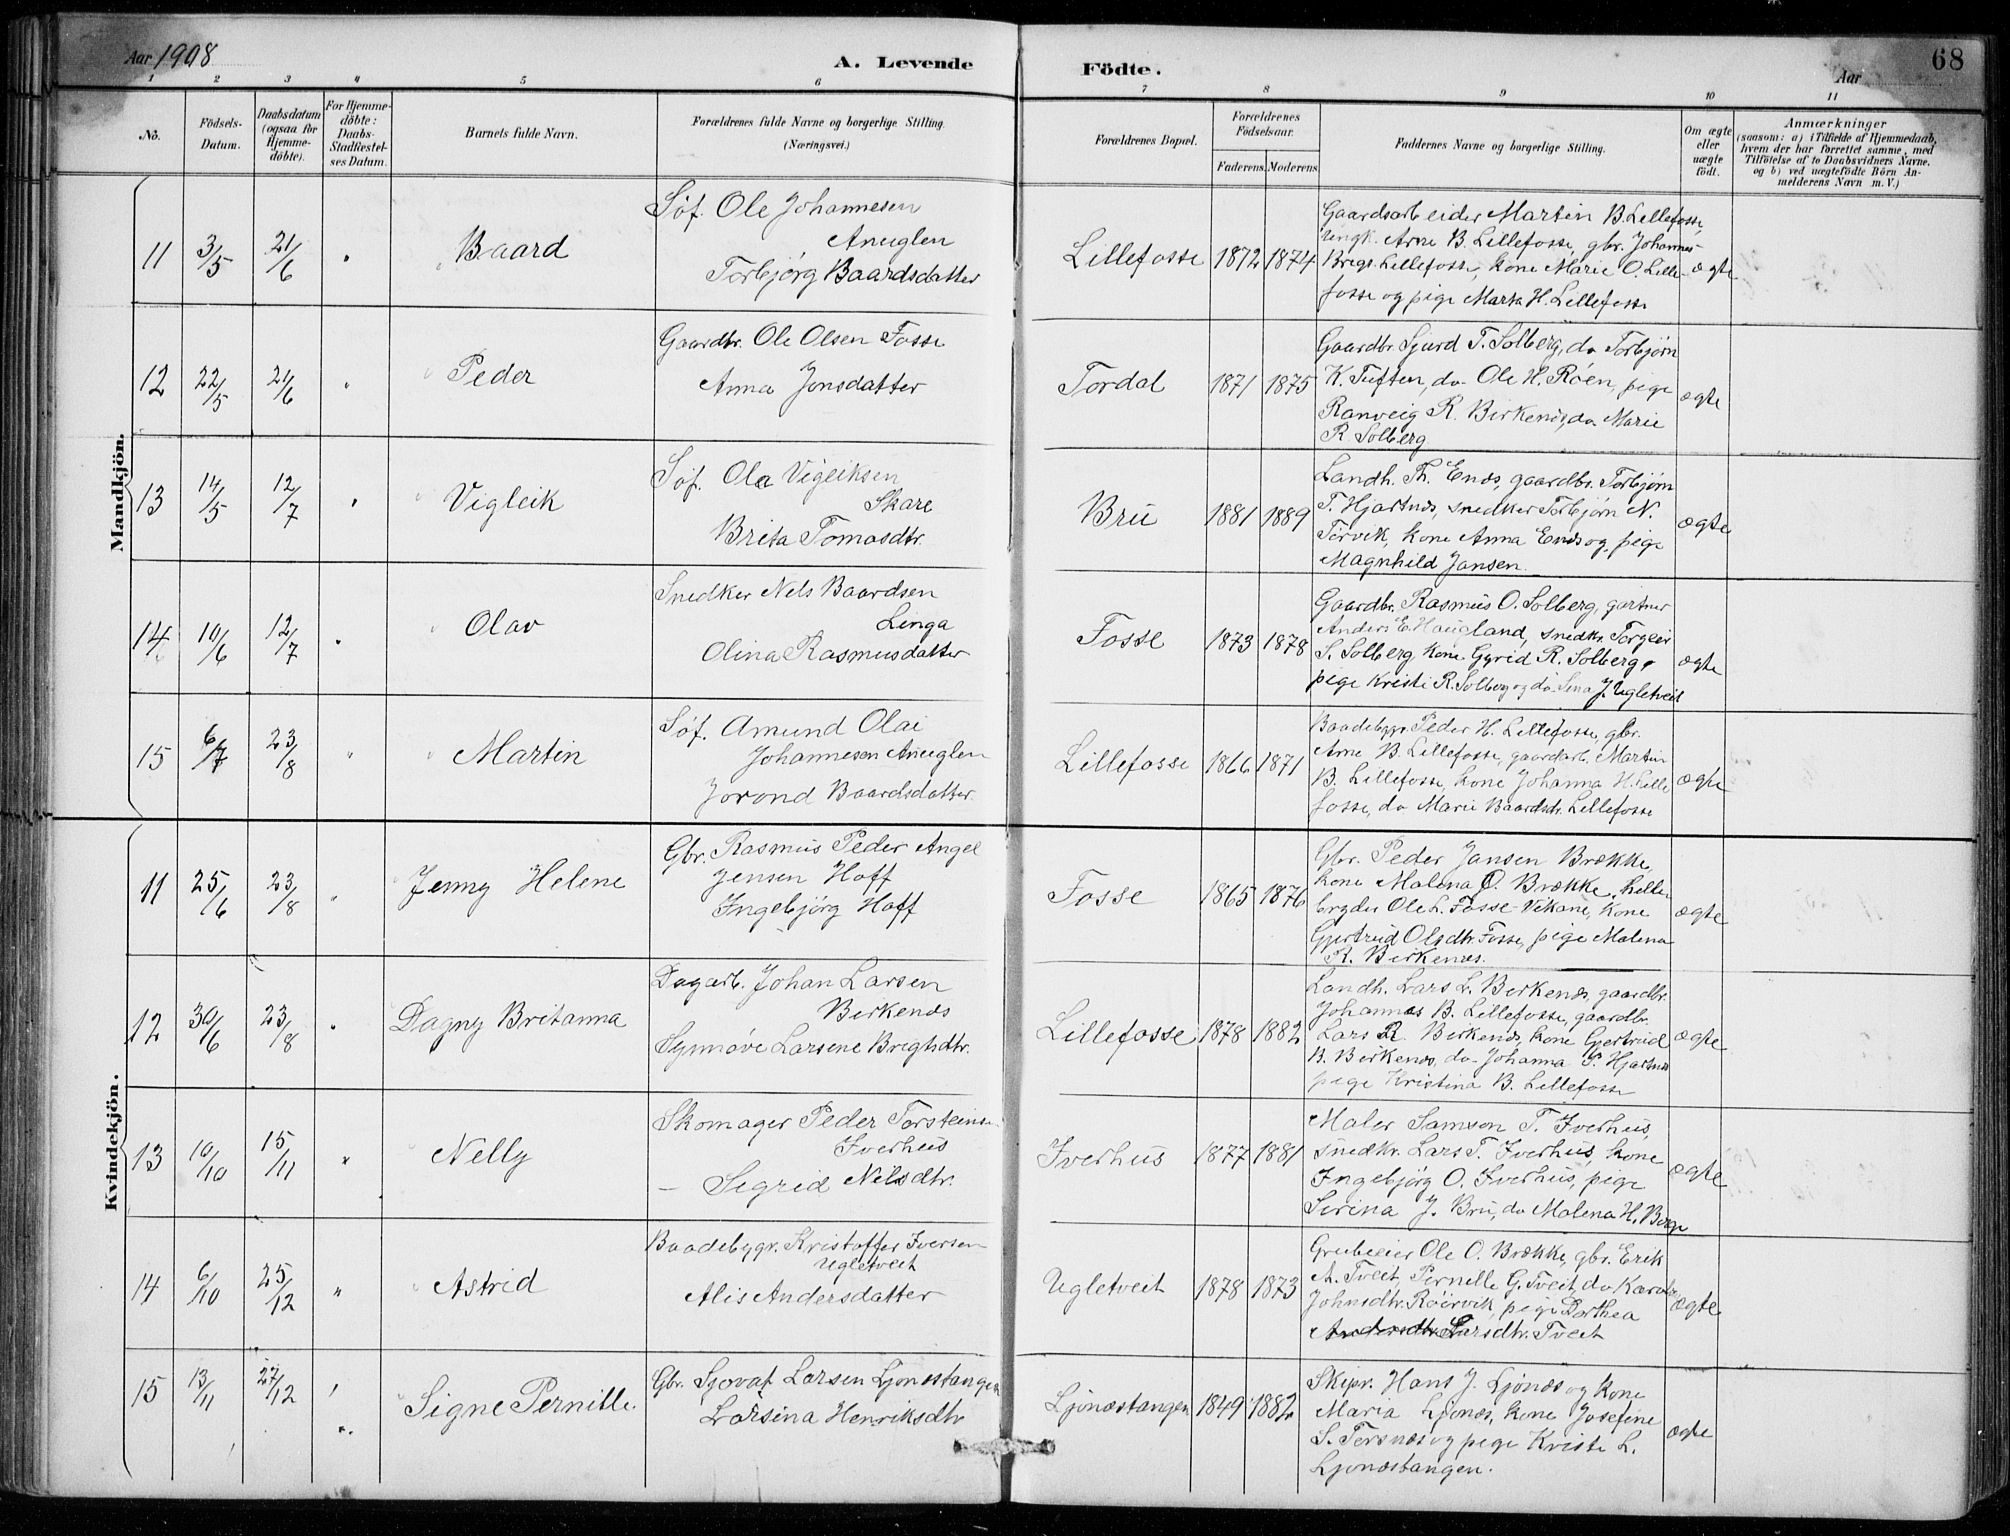 Aar 1908
A. Levende
Födte.
Aar
68
1 2 3 4 5 6 7 8 9 10 11
No.
Födsels-
Datum.
Daabsdatum
(ogsaa for
Hjemme-
döbte).
For Hjemme-
döbte:
Daabs-
Stadfæstel-
ses Datum.
Barnets fulde Navn.
Forældrenes fulde Navne og borgerlige Stilling.
(Næringsvei.)
Forældrenes Bopæl.
Forældrenes
Födselsaar.
Faderens. Moderens
Faddernes Navne og borgerlige Stilling.
Om ægte
eller
uægte
födt.
Anmærkninger
(saasom: a) i Tilfælde af Hjemmedaab,
hvem der har forrettet samme, med
Tilföielse af to Daabsvidners Navne.
og b) ved uægtefödte Börn An-
melderens Navn m. V.)
Mandkjön.
11 3/5 21/6 " Baard
Söf. Ole Johannesen
Aneuglen
Torbjörg Baardsdatter
Lillefosse 1872 1874
Gaardsarbeider Martin B. Lillefosse
Ungk. Arne B. Lillefosse, gbr. Johannes
Brigt. Lillefosse, kone Marie O. Lille-
fosse og pige Marta H. Lillefosse
ægte
12 22/5 21/6 " Peder
Gaardbr. Ole Olsen Fosse
Anna Jonsdatter
Tordal 1871 1875
Gaardbr. Sjurd T. Solberg, do Torbjørn
K. Tuften, do Ole H. Röen, pige
Ranveig R. Birkenæs, do Marie
R. Solberg
ægte
13 14/5 12/7 " Vigleik
Söf. Ola Vigleiksen
Skare
Brita Tomasdtr.
Bru 1881 1889
Landh. Th. Enæs, gaardbr. Torbjørn
T. Hjartnæs, snedker Torbjørn N.
Tervik, kone Anna Enæs og pige
Magnhild Jansen.
ægte
14 10/6 12/7 " Olav
Snedker Nels Baardsen
Linga
Olina Rasmusdatter
Fosse 1873 1878
Gaardbr. Rasmus O. Solberg, gartner
Anders E. Haugland, snedkr. Torgeir
S. Solberg, kone Gyrid R. Solberg,
pige Kristi R. Solberg og do Sina J. Ugletveit
ægte
15 6/7 23/8 " Martin
Söf. Amund Olai
Johannesen Aneuglen
Jorond Baardsdatter.
Lillefosse 1866 1871
Baadebygr. Peder H. Lillefosse, gbr.
Arne B. Lillefosse, gaardarb. Martin
B. Lillefosse, kone Johanna H. Lille
fosse, do Marie Baardsdtr. Lillefosse
ægte
Kvindekjön.
11 25/6 23/8 " Jenny Helene
Gbr. Rasmus Peder Angel
Jensen Hoff
Ingebjörg Hoff
Fosse 1865 1876
Gbr. Peder Jansen Brække,
kone Malena O. Brække,
Ole L. Fosse-Vikane, kone
Gjertrud Olsdtr. Fosse, pige Malena
R. Birkenæs.
ægte
12 30/6 23/8 " Dagny Britanna
Dagarb. Johan Larsen
Birkenæs
Synnöve Larsene Brigtsdtr.
Lillefosse 1878 1882
Landh. Lars L. Berkenæs, gaardbr.
Johannes B. Lillefosse, gaardbr.
Lars R. Birkenæs, kone Gjertrud
B. Birkenæs, do Johanna S. Hjartnæs
pige Kristina B. Lillefosse
ægte
13 10/10 15/11 " Nelly
Skomager Peder Torsteins.
Iverhus
— Sigrid Nilsdtr.
Iverhus 1877 1881
Maler Samson T. Iverhus,
snedkr. Lars T. Iverhus, kone
Ingebjörg O. Iverhus, pige
Serina J. Bru, do Malena H. Berge
ægte
14 6/10 25/12 " Astrid
Baadebygr. Kristoffer Iversen
Ugletveit
Alis Andersdatter
Ugletveit 1878 1873
Grubeeier Ole O. Brække, gbr. Erik
A. Tveit, Pernille G. Tveit, do
Johnsdtr. Röirvik, pige Dorthea
Andersdtr. Larsdtr. Tveit
ægte
15 13/11 27/12 " Signe Pernille.
Gbr. Sjovat Larsen Ljonæstangen
Larsina Henriksdtr
Ljönæstangen 1849 1882
Skipr. Hans J. Ljönæs og kone
Maria Ljonæs, kone Josefine
S. Tersnæs og pige Kriste L.
Ljonæstangen.
ægte